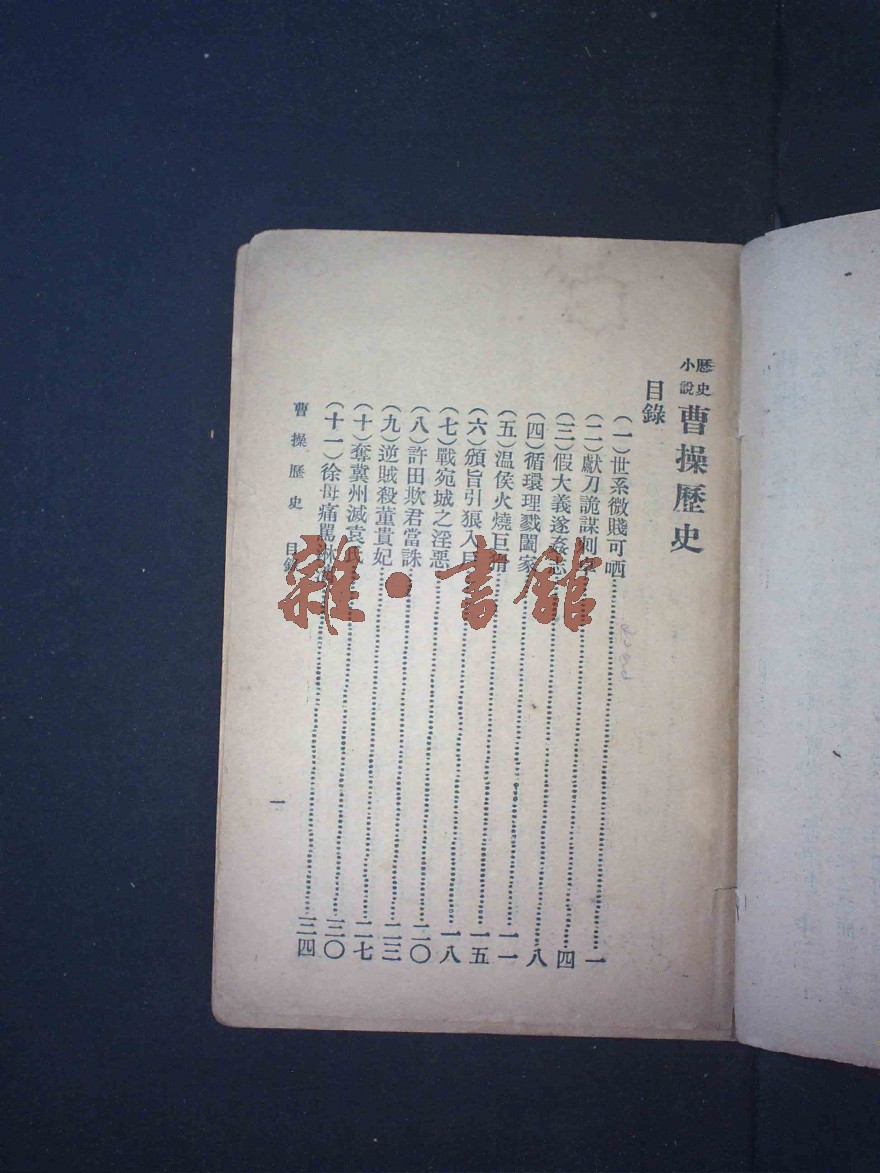 歷史小說 曹操歷史
目錄
(一)世系微賤可哂……一
(二)獻刀詭謀……四
(三)假大義遂姦……八
(四)循環理戮闔家……一一
(五)溫侯火燒巨……一五
(六)頒旨引狼入……一八
(七)戰宛城之淫惡……二〇
(八)許田欺君當誅……二三
(九)逆賊殺董貴妃……二七
(十)奪冀州滅袁氏……三〇
(十一)徐母痛罵淋……三四
曹操歷史 目錄
一
雜·書館